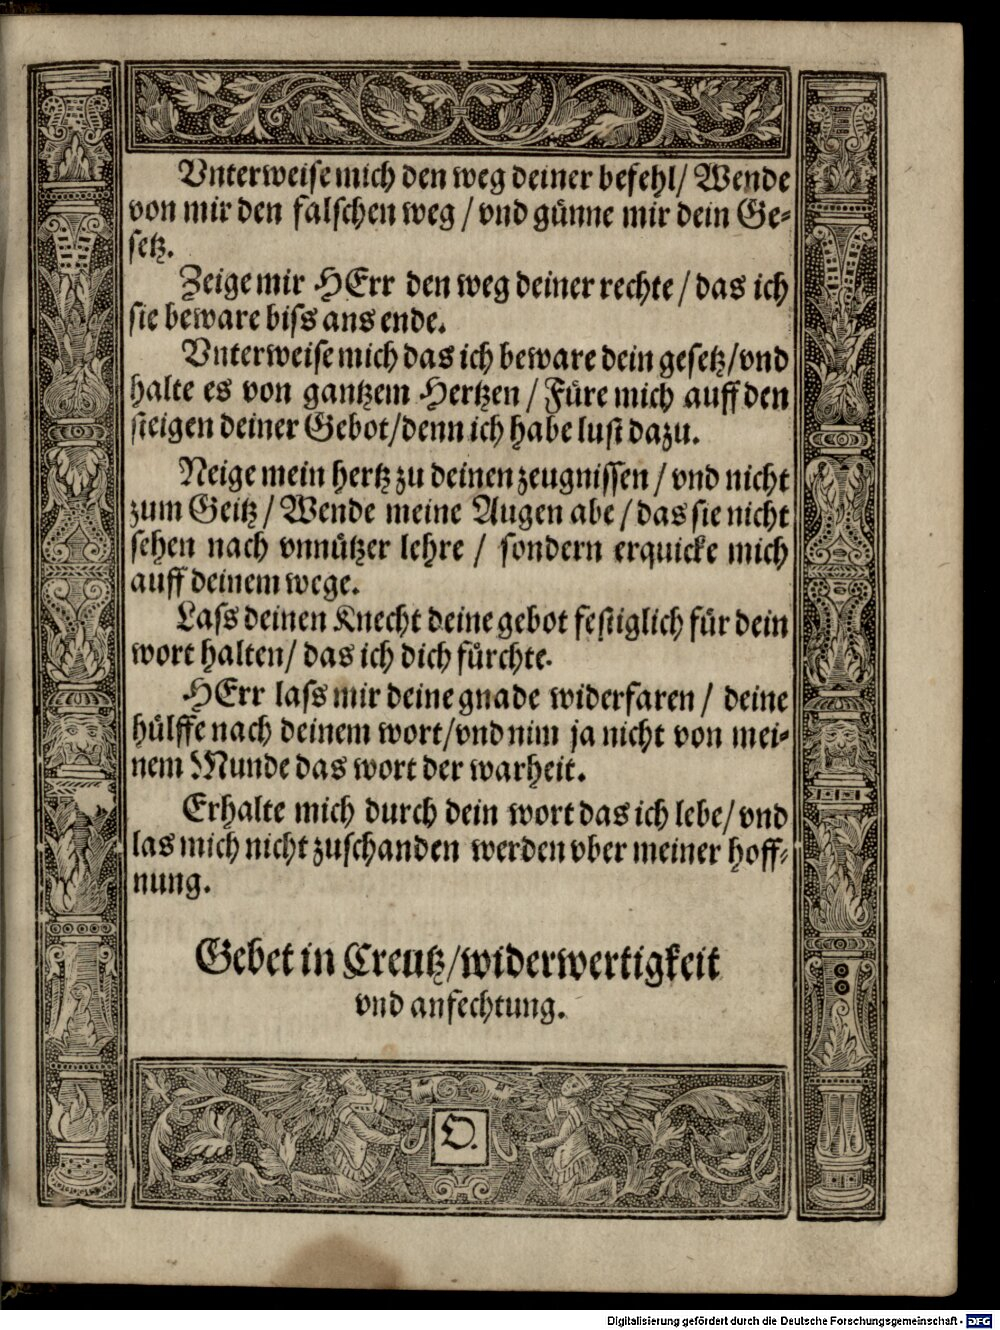 Vnterweise mich den weg deiner befehl/ Wende
von mir den falschen weg / vnd günne mir dein Ge⸗
setz.
Zeige mir HErr den weg deiner rechte / das ich
sie beware biss ans ende.
Vnterweise mich das ich beware dein gesetz/vnd
halte es von gantzem Hertzen / Füre mich auff den
steigen deiner Gebot/denn ich habe lust dazu.
Neige mein hertz zu deinen zeugnissen / vnd nicht
zum Geitz / Wende meine Augen abe / das sie nicht
sehen nach vnnützer lehre / sondern erquicke mich
auff deinem wege.
Lass deinen Knecht deine gebot festiglich für dein
wort halten/ das ich dich fürchte.
HErr lass mir deine gnade widerfaren / deine
hülffe nach deinem wort/vnd nim ja nicht von mei⸗
nem Munde das wort der warheit.
Erhalte mich durch dein wort das ich lebe/ vnd
las mich nicht zuschanden werden vber meiner hoff⸗
nung.
Gebet in Creutz/widerwertigkeit
vnd anfechtung.
O.
Digitalisierung gefördert durch die Deutsche Forschungsgemeinschaft - DFG